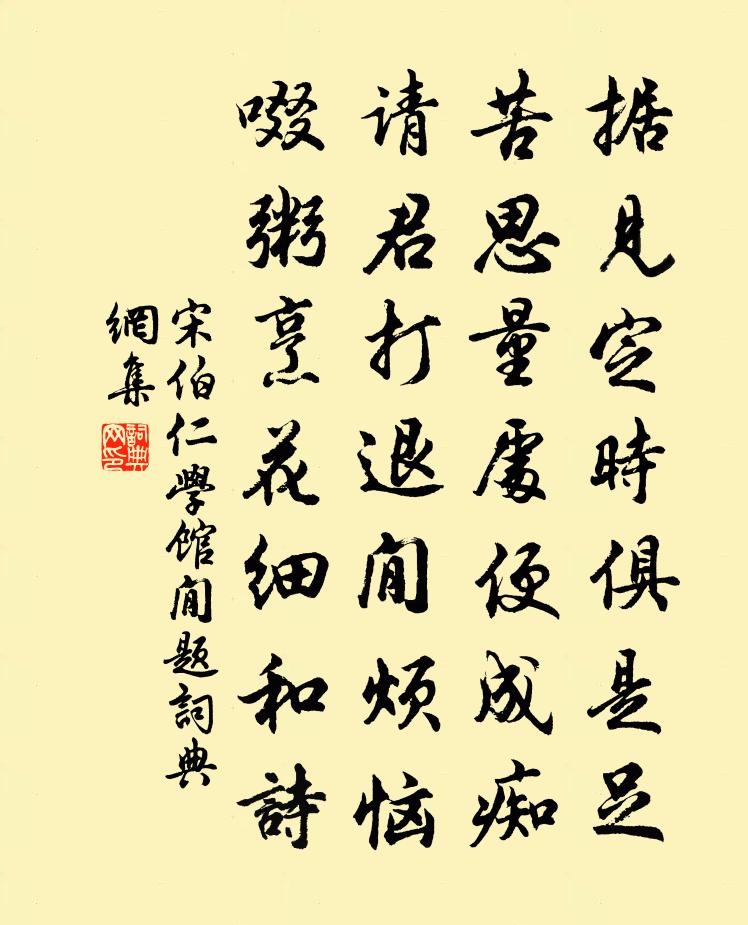 据见定時俱是足
苦思量處便成痴
请君打退闲烦恼
啜粥烹花细和詩
宋伯仁學馆闲题詞典
網集
詞典网印